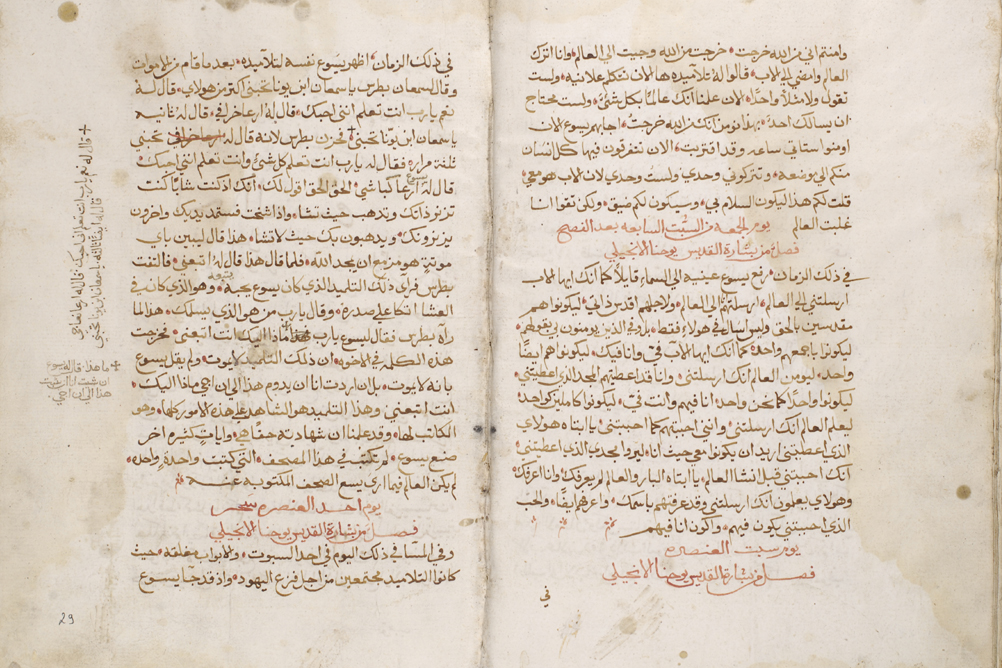 وامنتم اني من الله خرجت خرجت من الله وجيت الي العالم وانا اترك
العالم وامضي الي الاب قالوا له تلاميذه ها الان تتكلم علانية ولست
تقول ولا مثلا واحدا الان علمنا انك عالما بكل شي ولست محتاج
ان يسالك احد بهذا نومن انك من الله خرجت اجابهم يسوع الان
اومنوا ستاتي ساعه وقد اقتربت الان تتفرقون فيها كل انسان
منكم الي موضعه وتتركوني وحدي ولست وحدي لان الاب هو معي
قلت لكم هذا ليكون السلام بي وسيكون لكم ضيق ولكن تقوا انا
غلبت العالم يوم الجمعة من السبت السابعه بعد الفصح
فصل من بشارة القديس يوحنا الانجيلي
في ذلك الزمان رفع يسوع عينيه الي السماء قايلا كما انك ايها الاب
ارسلتني الي العالم ارسلتهم الي العالم ولاجلهم اقدس ذاتي ليكونوا هم
مقدسين بالحق وليس اسال في هولاء فقط بل وفي الذين يومنون بي بقولهم
ليكونوا باجمعهم واحد كما انك ايها الاب في وانا فيك ليكونوا هم ايضا
واحد ليومن العالم انك ارسلتني وانا قد اعطيتهم المجد الذي اعطيتني
ليكونوا واحدا كما نحن واحد انا فيهم وانت في ليكونوا كاملين كواحد
ليعلم العالم انك ارسلتني وانني احببتهم كما احببتني يا ابتاه هولاي
الذي اعطيتني اريد ان يكونوا معي حيث انا ليروا المجد الذي اعطيتني
انك احببتني قبل نشا العالم يا ابتاه البار والعالم لم يعرفك وانا اعرفك
وهولاي يعلمون انك ارسلتني وقد عرفتهم باسمك واعرفهم ايضا والحب
الذي احببتني يكون فيهم واكون انا فيهم
يوم سبت العنصره
فصل من بشارة القديس يوحنا الانجيلي
في
في ذلك الزمان اظهر يسوع نفسه لتلاميذه بعد ما قام من الاموات
وقال لسمعان بطرس يا سمعان ابن يونا تحبني اكتر من هولاي قال له
نعم يارب انت تعلم انني احبك قال له ارعا خرافي قال له ثانيه
يا سمعان ابن يونا تحبني فحزن بطرس لانه قال له تحبني
ثلثة مرار فقال له يارب انت تعلم كل شي وانت تعلم انني احبك
قال له يسوع ارعا كباشي الحق الحق اقول لك انك اذ كنت شابا كنت
تزنر ذاتك وتذهب حيث تشاء واذا شخت فستمد يديك واخرون
يزنرونك ويذهبون بك حيث لا تشا هذا قال ليبين باي
موتة هو مزمع ان يمجد الله فلما قال هذا قال له اتبعني فالتفت
بطرس فراي ذلك التلميذ الذي كان يسوع يحبه يتبعه وهو الذي كان في
العشا اتكا علي صدره وقال يارب من هو الذي يسلمك هذا لما
راه بطرس فقال ليسوع يارب هذا ماذا اليك انت اتبعني فخرجت
هذه الكلمه في الاخوه ان ذلك التلميذ لا يموت ولم يقل يسوع
بانه لا يموت بل ان اردت انا ان يدوم هذا الي ان اجي ماذا اليك
انت اتبعني وهذا التلميذ هو الشاهد علي هذه الامور كلها وهو
الكاتب لها وقد علمنا ان شهادته حقا هي وايات كثيره اخر
صنع يسوع لم تكتب في هذا المصحف التي كتبت واحدة واحده
لم يكن العالم فيما اري يسع الصحف المكتوبه عنه
يوم احد العنصره سحر
فصل من بشارة القديس يوحنا الانجيلي
وفي المسا في ذلك اليوم في احد السبوت والابواب مغلقة حيث
كانوا التلاميذ مجتمعين من اجل فزع اليهود واذ قد جا يسوع
قال له نعم يارب انت تعلم اني احبك قال له ارعا نعاجي
قال له ايضا ثالثه يا سمعان ابن يونا تحبني
ما هذا قال له يسوع
ان شيت انا ان يثبت
هذا الي ان اجي
29